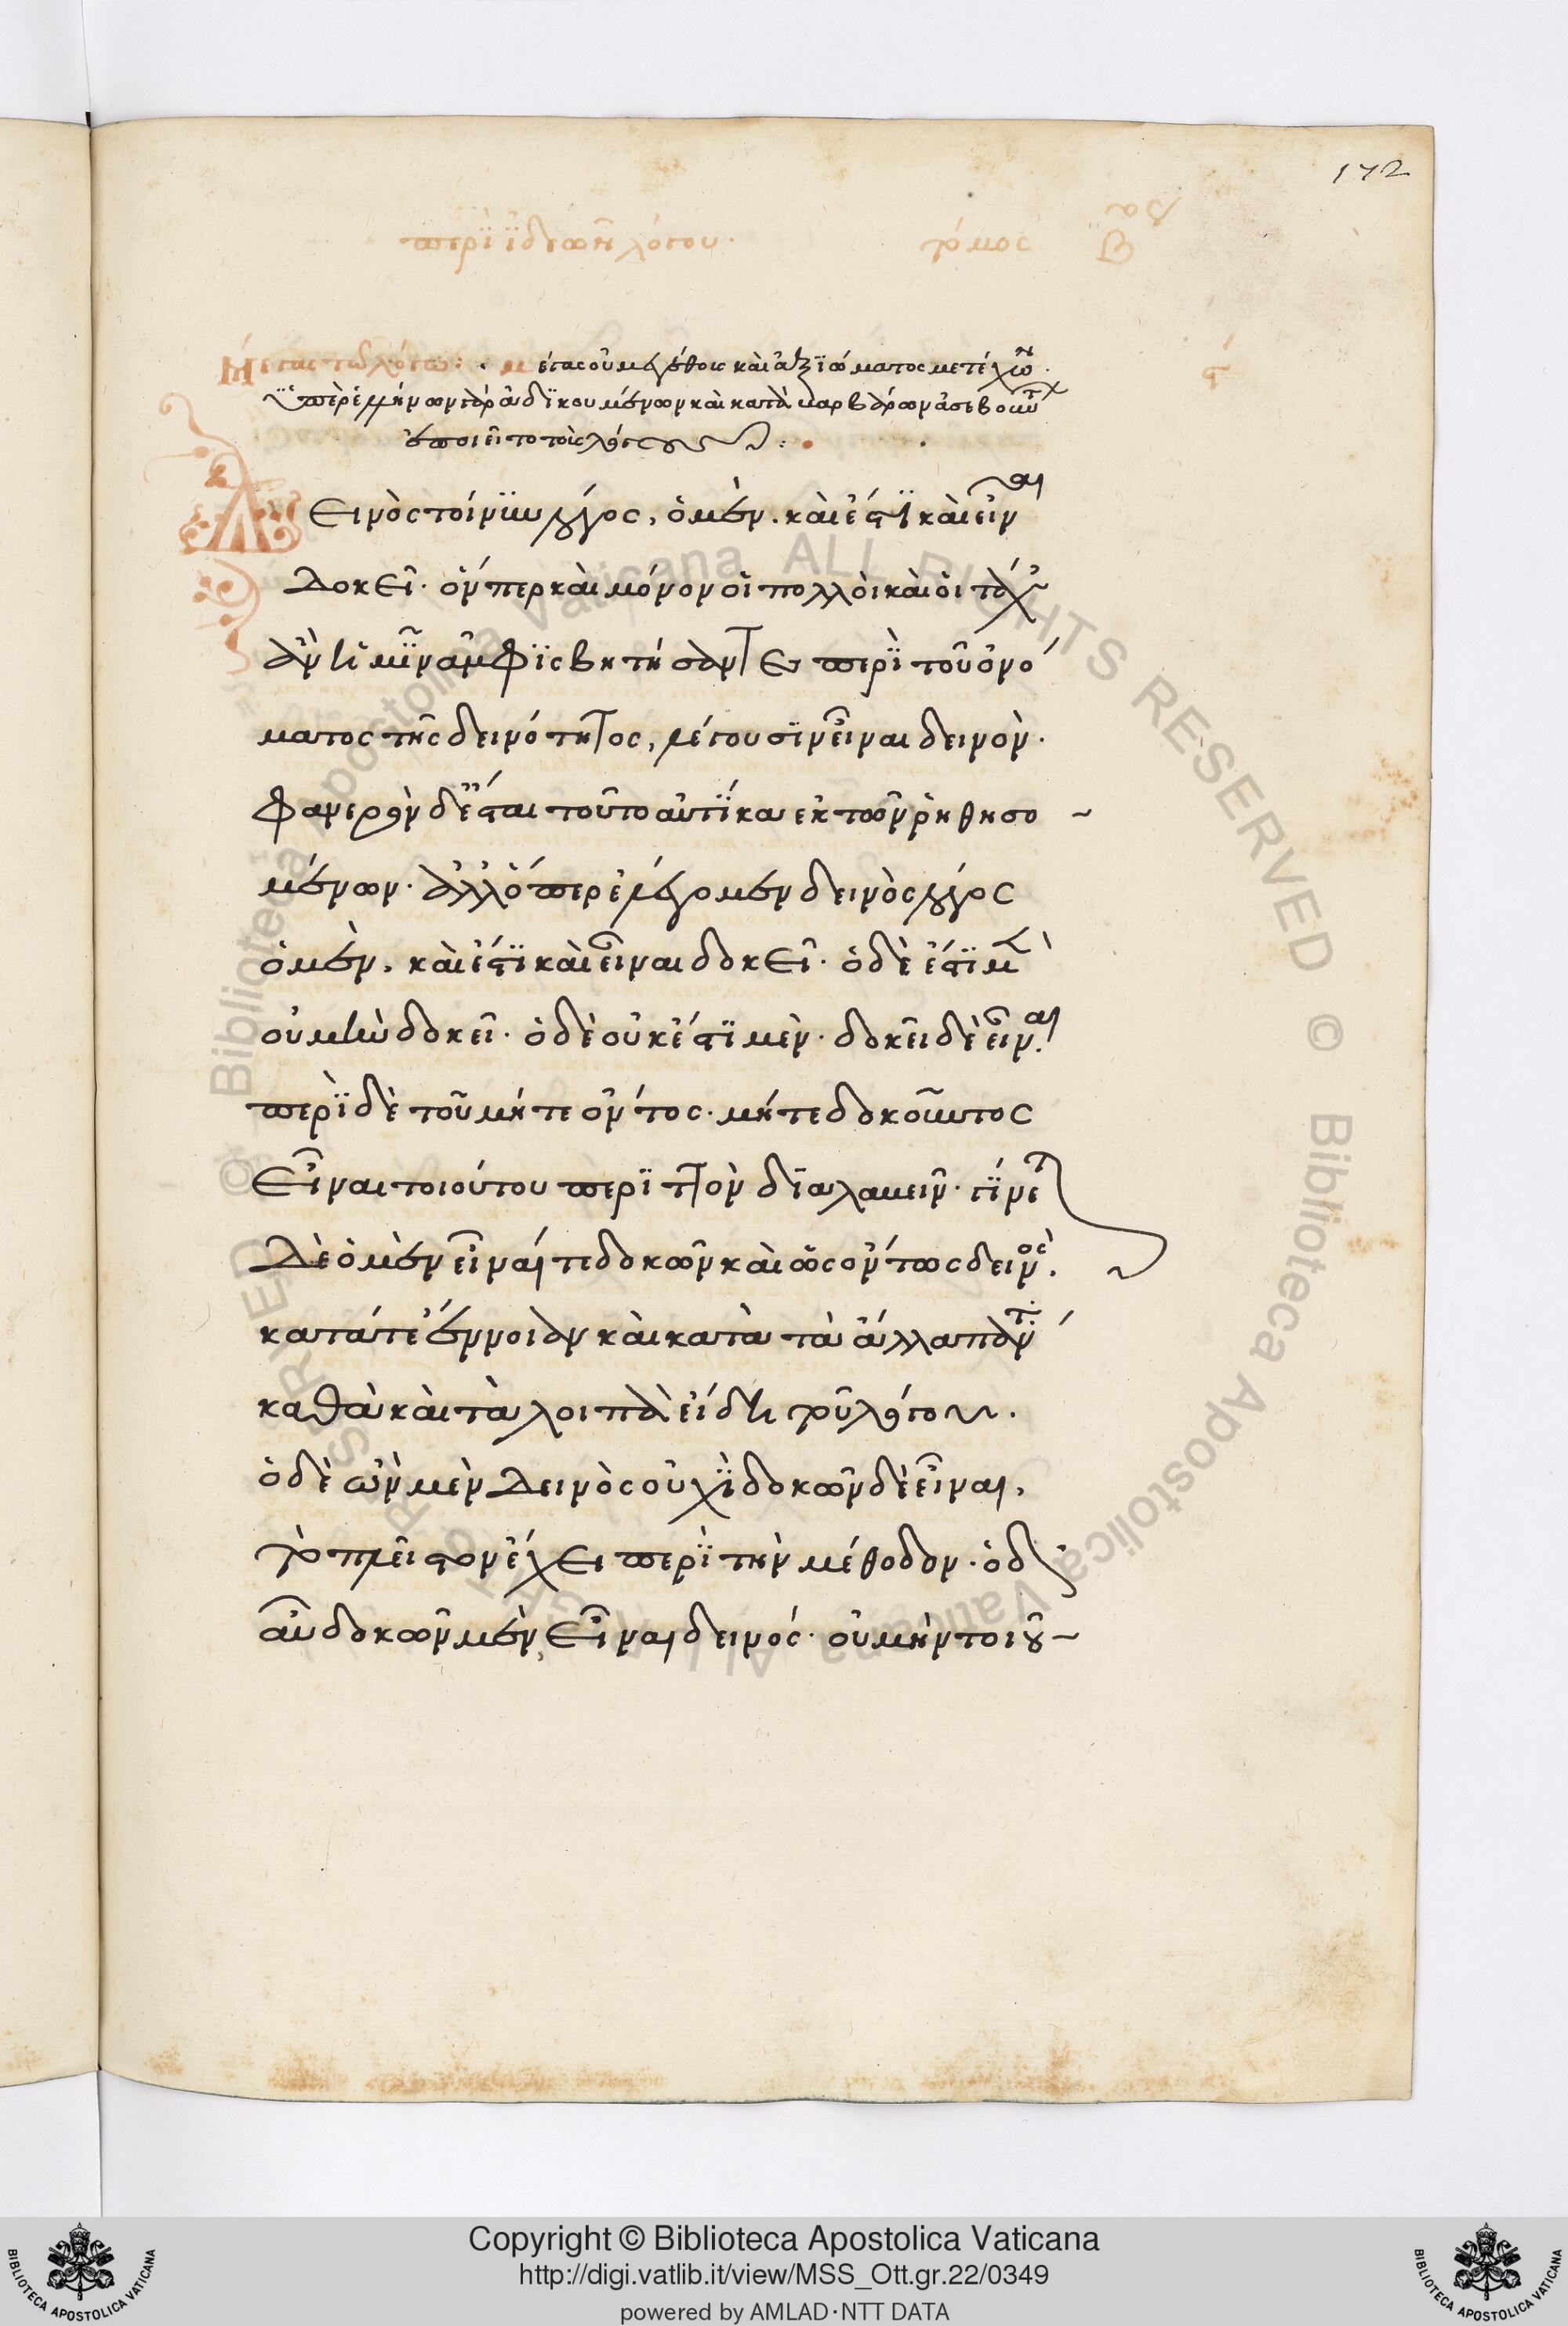 172
περὶ ἰδεῶν λόγου. τόμος Βος
μέγας οὐ μεγέθους καὶ ἀξιώματος μετέχων.
ὑπὲρ ἑλλήνων γὰρ ἀδικουμένων καὶ κατὰ βαρβάρων ἀσεβούντ
ἐποιεῖτο τοὺς λόγους:
Δεινὸς τοίνυν λόγος, ὁ μέν. καὶ ἔστι καὶ εἶναι
δοκεῖ. ὅνπερ καὶ μόνον οἱ πολλοὶ καὶ οἱ τάχ
ἂν ἡμῖν ἀμφισβητήσαντες περὶ τοῦ ὀνό
ματος τῆς δεινότητος, λέγουσιν εἶναι δεινόν.
φανερὸν δ' ἔσται τοῦτο αὐτίκα ἐκ τῶν ῥηθησο
μένων. ἀλλ' ὅπερ ἐλέγομεν δεινὸς λόγος
ὁ μέν, καὶ ἔστι καὶ εἶναι δοκεῖ. ὁ δὲ ἔστι μὲν
οὐ μὴν δοκεῖ. ὁ δὲ οὐκ ἔστι μέν. δοκεῖ δὲ εἶναι.
περὶ δὲ τοῦ μήτε ὄντος. μήτε δοκοῦντος
εἶναι τοιούτου περιττὸν διαλαβεῖν. γίνεται
δὲ ὁ μὲν εἶναί τε δοκῶν καὶ ὢς ὄντως δεινός.
κατά τε ἔννοιαν καὶ κατὰ τὰ ἄλλα πάντ
καθὰ καὶ τὰ λοιπὰ εἴδη τοῦ λόγου.
ὁ δὲ ὢν μὲν δεινὸς οὐχὶ δοκῶν δὲ εἶναι,
τὸ πλεῖστον ἔχει περὶ τὴν μέθοδον. ὁ δ'
αὖ δοκῶν μὲν εἶναι δεινός. οὐ μὴν τοιοῦ
Copyright © Biblioteca Apostolica Vaticana
http://digi.vatlib.it/view/MSS_Ott.gr.22/0349
powered by AMLAD·NTT DATA
BIBLIOTECA APOSTOLICA VATICANA
BIBLIOTECA APOSTOLICA VATICANA
© Biblioteca Apostolica Vaticana ALL RIGHTS RESERVED
© Biblioteca Apostolica Vaticana ALL RIGHTS RESERVED